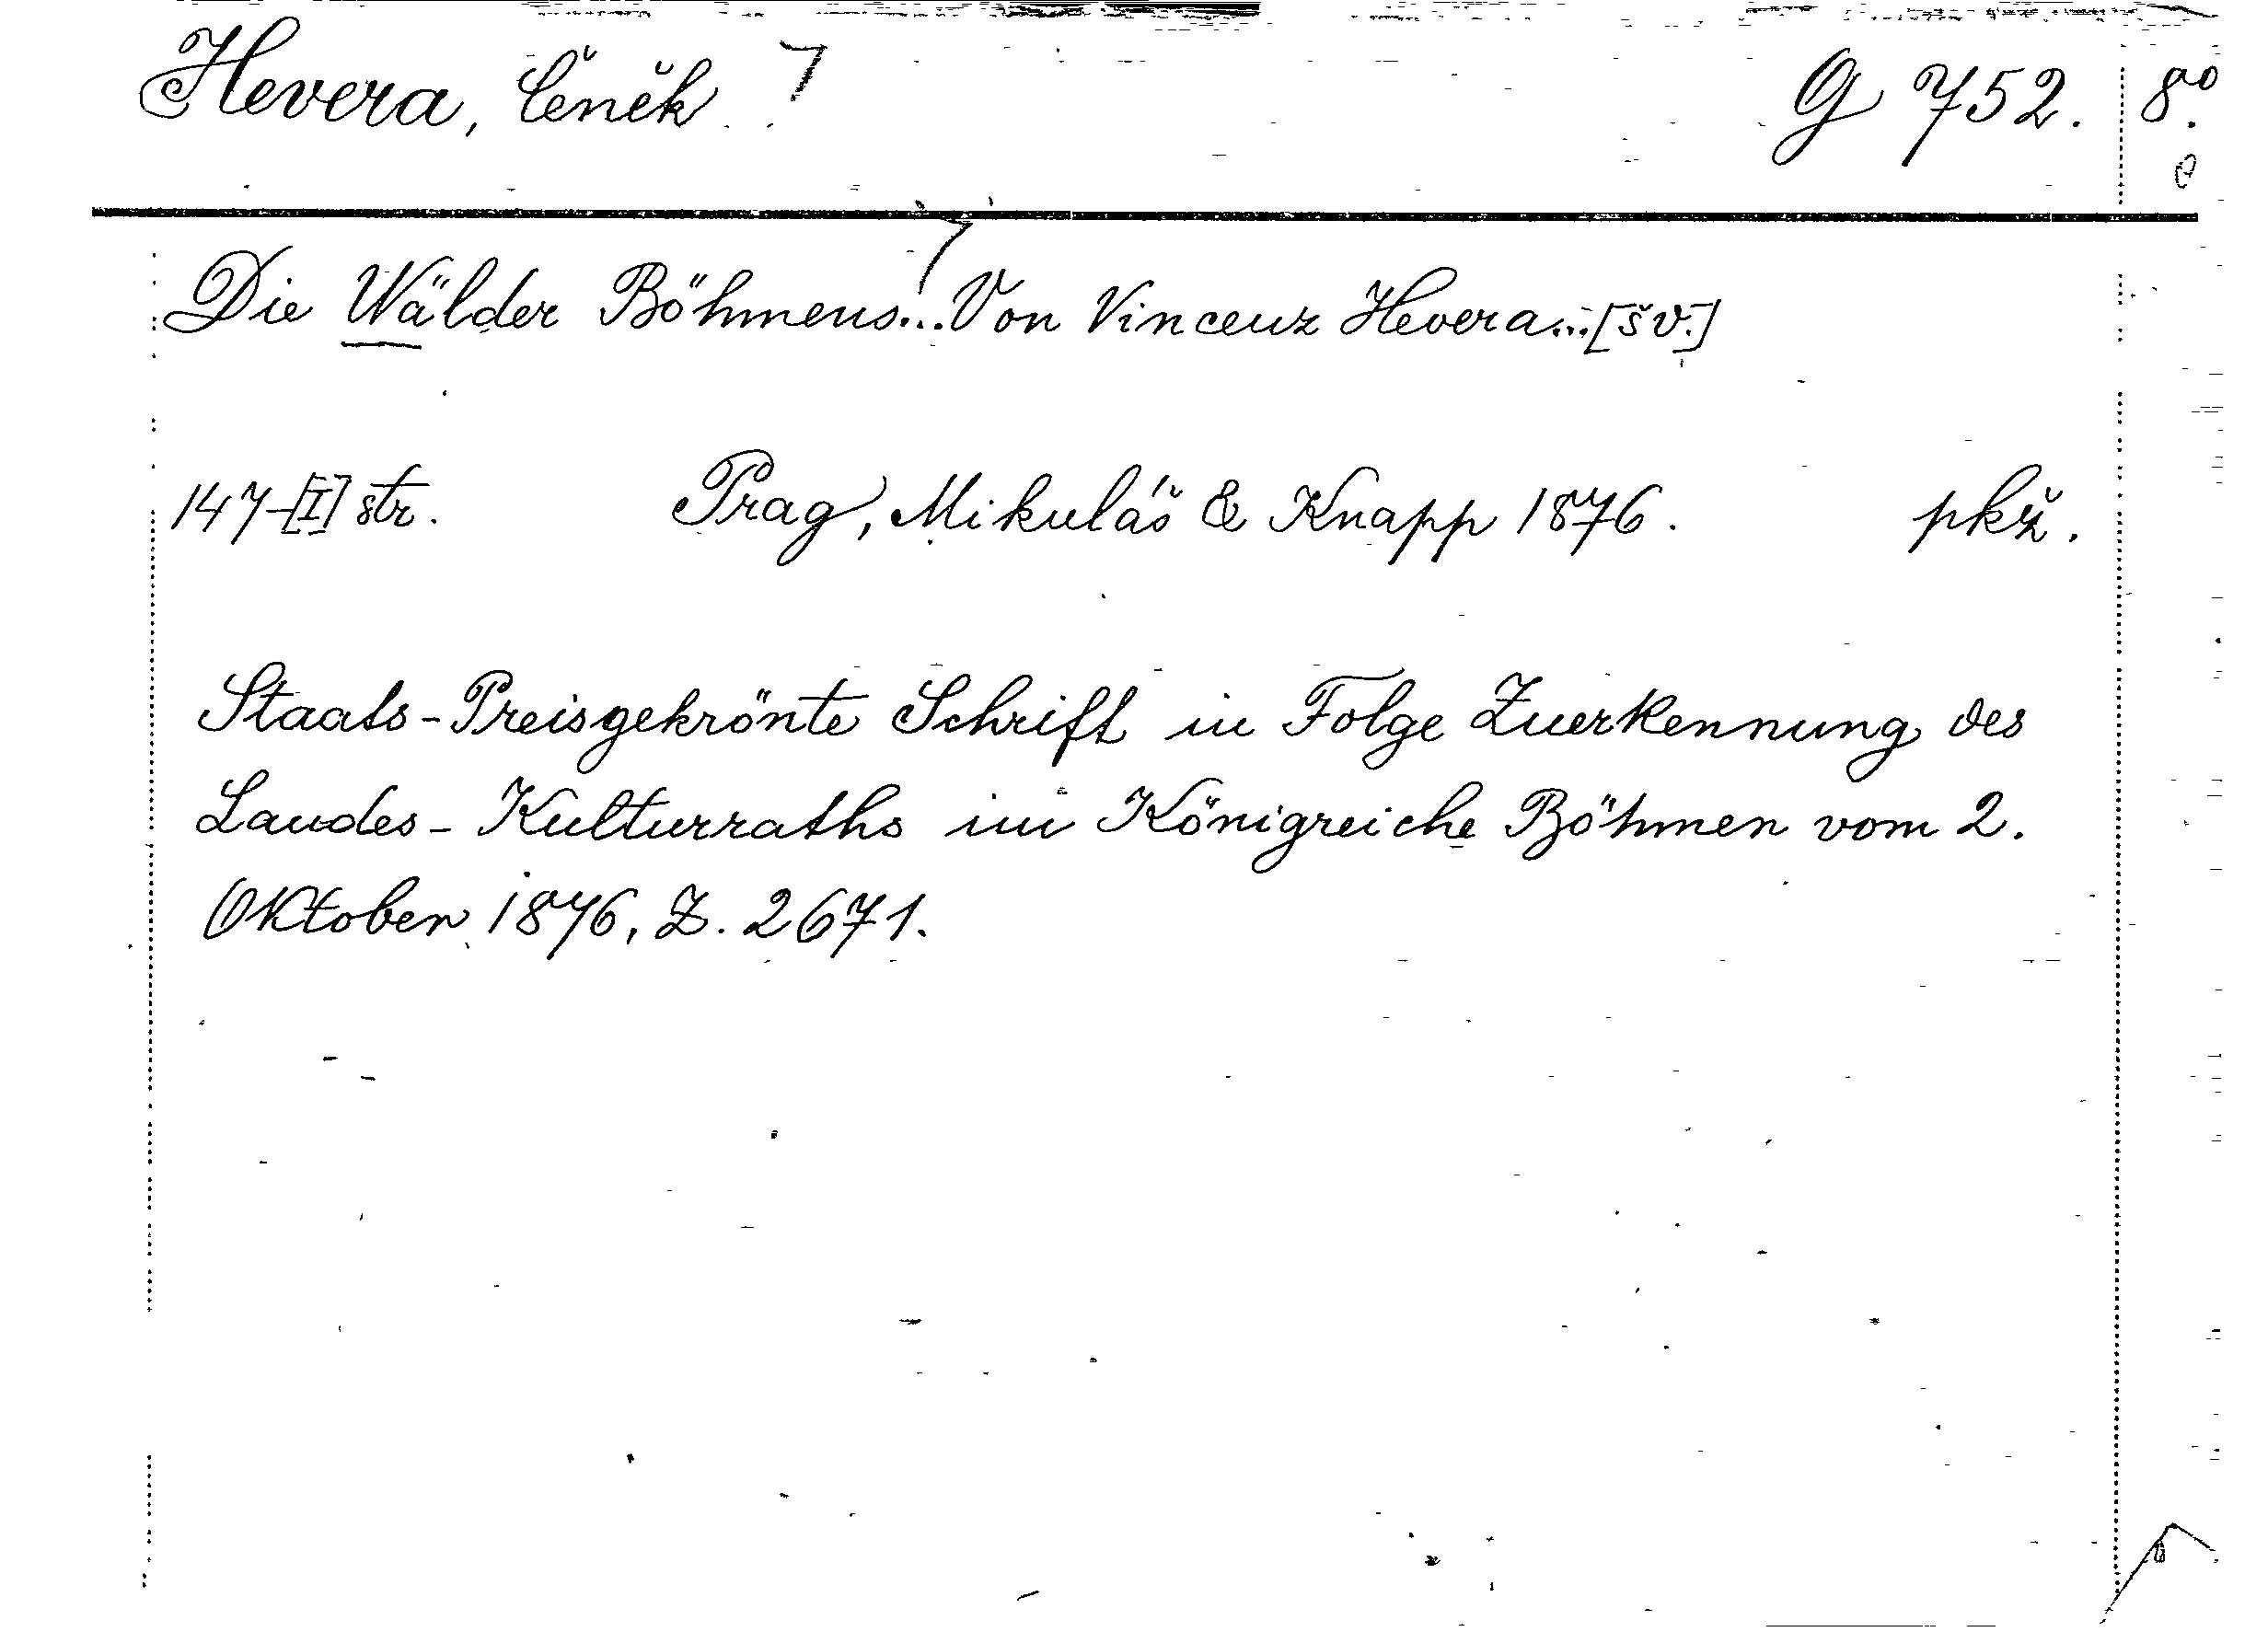 Hevera, Čeněk G 752. 8º.
Die Wälder Böhmens... Von Vincenz Hevera...[šv.]
147-[I] str. Prag, Mikuláš & Knapp 1876. pkž.
Staats-Preisgekrönte Schrift in Folge Zuerkennung des
Landes-Kulturraths im Königreiche Böhmen vom 2.
Oktober 1876, Z. 2671.